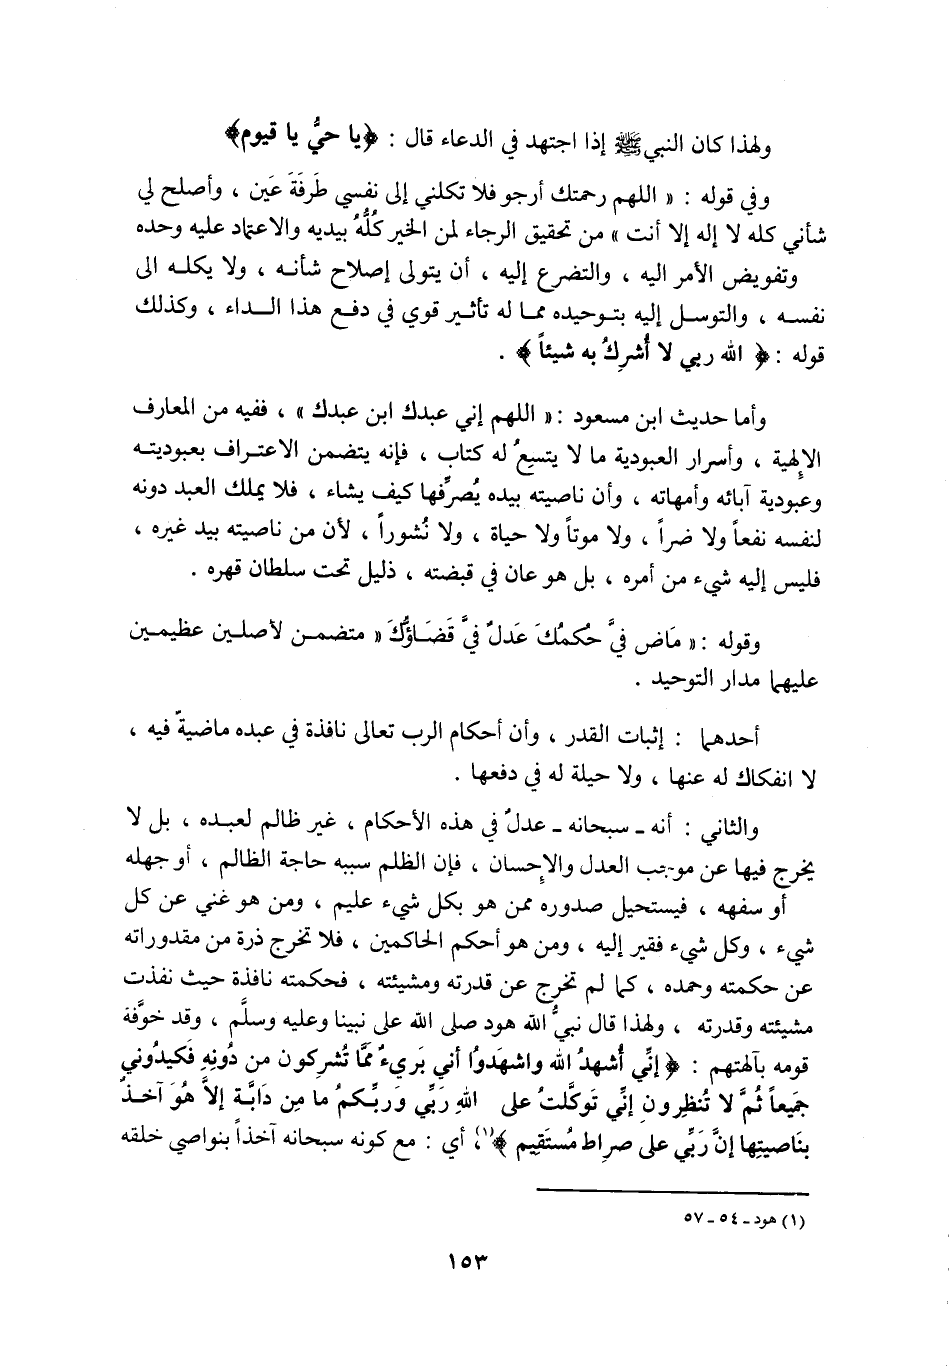 ولهذا كان النبي ﷺ إذا اجتهد في الدعاء قال : ﴿يا حيُّ يا قيوم﴾
وفي قوله : « اللهم رحمتك أرجو فلا تكلني إلى نفسي طَرفَةَ عَين ، وأصلح لي
شأني كله لا إله إلا أنت » من تحقيق الرجاء لمن الخير كُلُّهُ بيديه والاعتماد عليه وحده
وتفويض الأمر اليه ، والتضرع إليه ، أن يتولى إصلاح شأنه ، ولا يكله الى
نفسه ، والتوسل إليه بتوحيده مما له تأثير قوي في دفع هذا الداء ، وكذلك
قوله : ﴿ الله ربي لا أُشرِكُ به شيئاً ﴾ .
وأما حديث ابن مسعود : « اللهم إني عبدك ابن عبدك » ، ففيه من المعارف
الإلهية ، وأسرار العبودية ما لا يتسِعُ له كتاب ، فإنه يتضمن الاعتراف بعبوديته
وعبودية آبائه وأمهاته ، وأن ناصيته بيده يُصرِّفها كيف يشاء ، فلا يملك العبد دونه
لنفسه نفعاً ولا ضراً ، ولا موتاً ولا حياة ، ولا نُشوراً ، لأن من ناصيته بيد غيره ،
فليس إليه شيء من أمره ، بل هو عان في قبضته ، ذليل تحت سلطان قهره .
وقوله : « مَاض فيَّ حُكمُكَ عَدلٌ فيَّ قَضَاؤُكَ « متضمن لأصلين عظيمين
عليهما مدار التوحيد .
أحدهما : إثبات القدر ، وأن أحكام الرب تعالى نافذة في عبده ماضيةٌ فيه ،
لا انفكاك له عنها ، ولا حيلة له في دفعها .
والثاني : أنه ـ سبحانه ـ عدلٌ في هذه الأحكام ، غير ظالم لعبده ، بل لا
يخرج فيها عن موجب العدل والإحسان ، فإن الظلم سببه حاجة الظالم ، أو جهله
أو سفهه ، فيستحيل صدوره ممن هو بكل شيء عليم ، ومن هو غني عن كل
شيء ، وكل شيء فقير إليه ، ومن هو أحكم الحاكمين ، فلا تخرج ذرة من مقدوراته
عن حكمته وحمده ، كما لم تخرج عن قدرته ومشيئته ، فحكمته نافذة حيث نفذت
مشيئته وقدرته ، ولهذا قال نبيُّ الله هود صلى الله على نبينا وعليه وسلَّم ، وقد خوَّفة
قومه بآلهتهم : ﴿ إنِّي أُشهدُ الله واشهَدوُا أني بَريءٌ ممَّا تُشرِكون من دُونِهِ فَكيدُوني
جَميعاً ثُمَّ لا تُنظِرون إنِّي تَوكَّلتُ على اللهِ رَبِّي وَربِّكمُ ما مِن دَابَّة إلاَّ هُوَ آخذٌ
بنَاصيتِها إنَّ رَبِّي على صراط مُستَقِيم ﴾(١)، أي : مع كونه سبحانه آخذاً بنواصي خلقه
(١) هود ـ ٥٤ ـ ٥٧
١٥٣